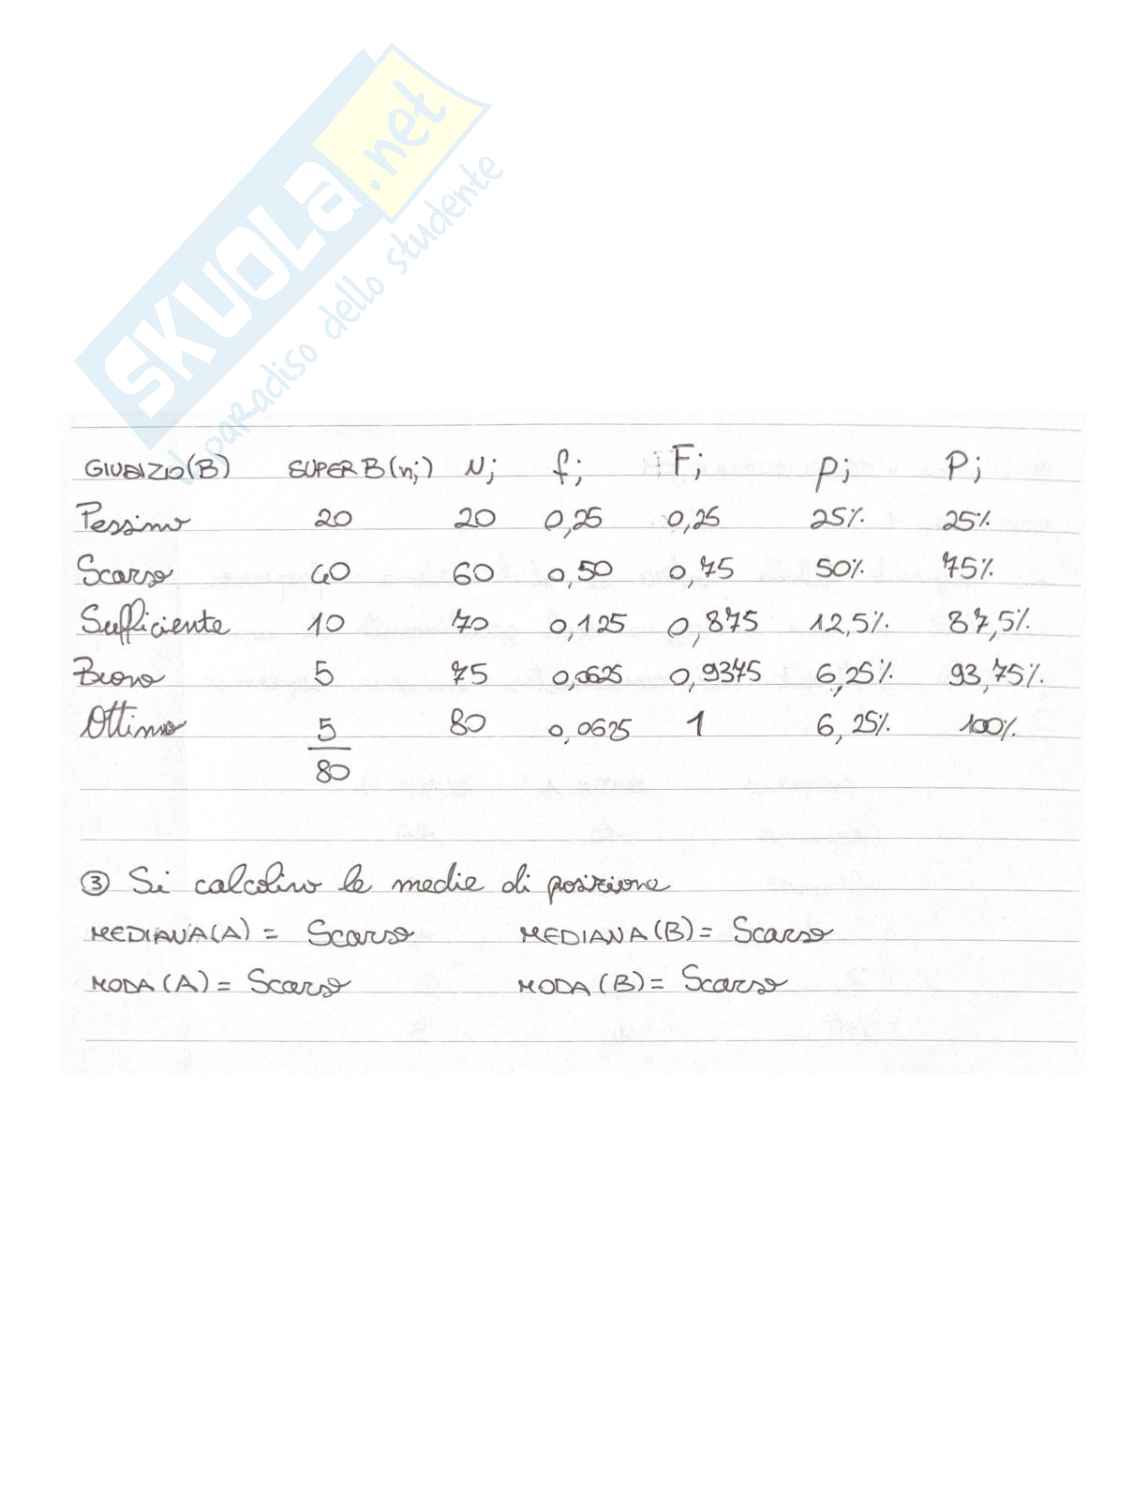 SKUOLA.net
il paradiso dello studente
GIUDIZIO(B) SUPER B(nj) Nj fj Fj pj Pj
Pessimo 20 20 0,25 0,25 25% 25%
Scarso 40 60 0,50 0,75 50% 75%
Sufficiente 10 70 0,125 0,875 12,5% 87,5%
Buono 5 75 0,0625 0,9375 6,25% 93,75%
Ottimo 5 80 0,0625 1 6,25% 100%
80
③ Si calcolino le medie di posizione
MEDIANA(A) = Scarso MEDIANA(B) = Scarso
MODA(A) = Scarso MODA(B) = Scarso